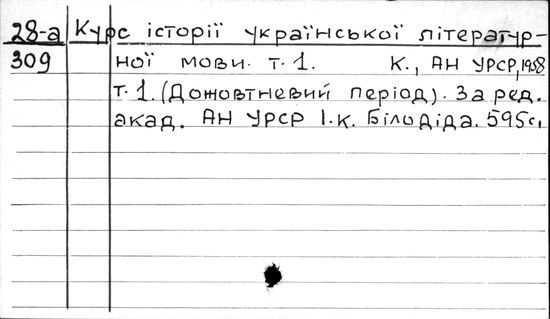 28-а Курс історії української літератур-
309 ної мови. т. 1. К., АН УРСР, 1958
т. 1. (Дожовтневий період). За ред.
акад. АН УРСР І.К. Білодіда. 595с.